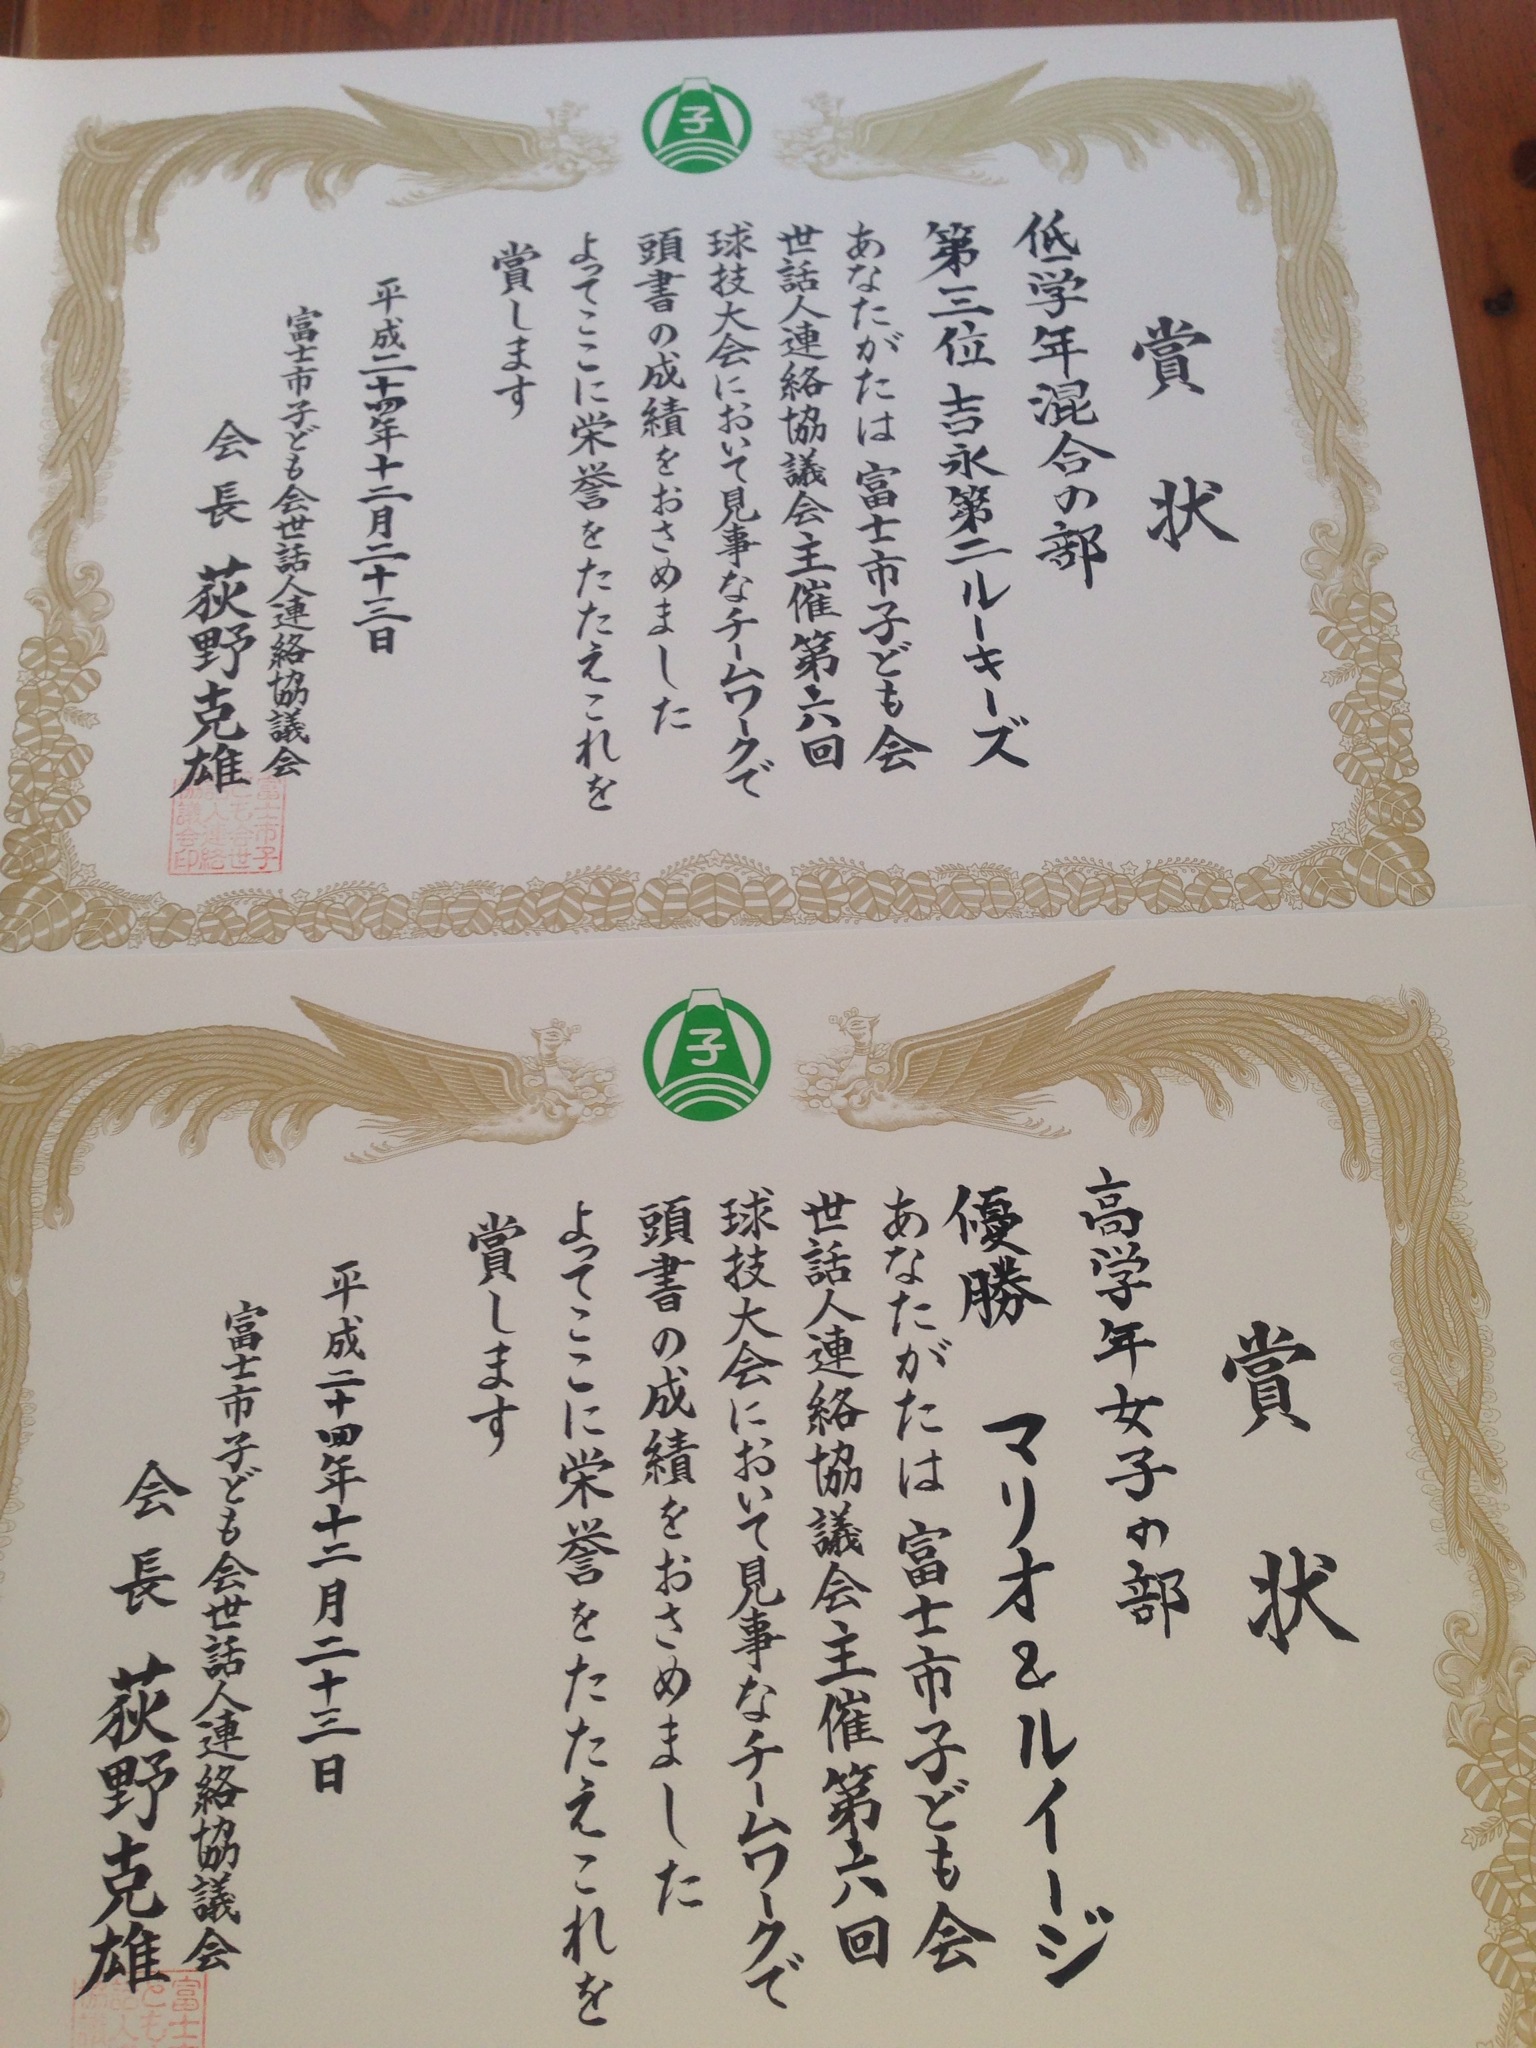 子
賞状
低学年混合の部
第三位 吉永第二ルーキーズ
あなたがたは富士市子ども会
世話人連絡協議会主催第六回
球技大会において見事なチームワークで
頭書の成績をおさめました
よってここに栄誉をたたえこれを
賞します
平成二十四年十二月二十三日
富士市子ども会世話人連絡協議会
会長 荻野克雄
富士市子
ども会世
話人連絡
協議会印
子
賞状
高学年女子の部
優勝 マリオ&ルイージ
あなたがたは富士市子ども会
世話人連絡協議会主催第六回
球技大会において見事なチームワークで
頭書の成績をおさめました
よってここに栄誉をたたえこれを
賞します
平成二十四年十二月二十三日
富士市子ども会世話人連絡協議会
会長 荻野克雄
富士
ども
話人
協議